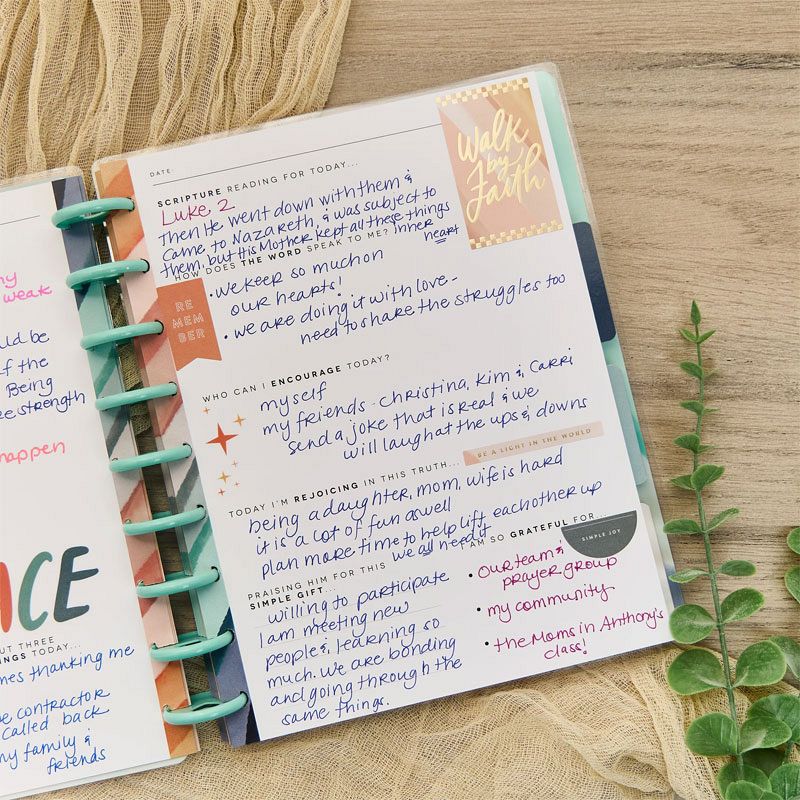 ny
weak
uld be
f the
Being
e strength
happen
ICE
UT THREE
NGS TODAY...
mes thanking me
e contractor
called back
my family &
friends
DATE:
SCRIPTURE READING FOR TODAY...
Luke, 2
Then He went down with them &
came to Nazareth, & was subject to
them, but His Mother kept all these things
inner
heart
HOW DOES THE WORD SPEAK TO ME?
• we keep so much on
our hearts!
• we are doing it with love -
need to share the struggles too
Walk
by
Faith
RE
MEM
BER
WHO CAN I ENCOURAGE TODAY?
myself
my friends - Christina, Kim & Carri
send a joke that is real & we
will laugh at the ups & downs
BE A LIGHT IN THE WORLD
TODAY I'M REJOICING IN THIS TRUTH...
being a daughter, mom, wife is hard
it is a lot of fun aswell
plan more time to help lift each other up
we all need it
PRAISING HIM FOR THIS
SIMPLE GIFT...
willing to participate
I am meeting new
people & learning so
much. We are bonding
and going through the
same things.
I AM SO GRATEFUL FOR...
SIMPLE JOY
• Our team &
prayer group
• my community
• the Moms in Anthony's
class!